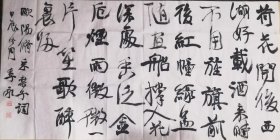 荷花開後西
湖好載酒來時
不用旌旗前
後紅幢綠蓋
隨畫船撑入花
深處香泛金
卮烟雨微微一
片笙歌醉
裏歸
歐陽修采桑子詞